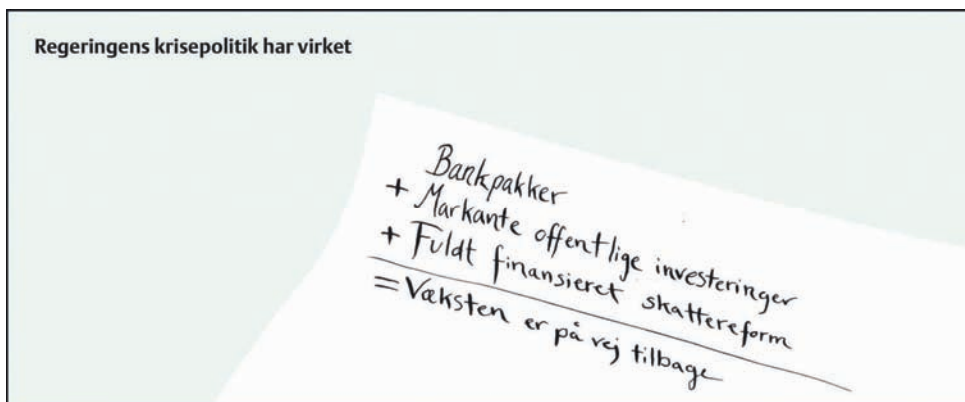 Regeringens krisepolitik har virket
Bankpakker
+ Markante offentlige investeringer
+ Fuldt finansieret skattereform
= Væksten er på vej tilbage